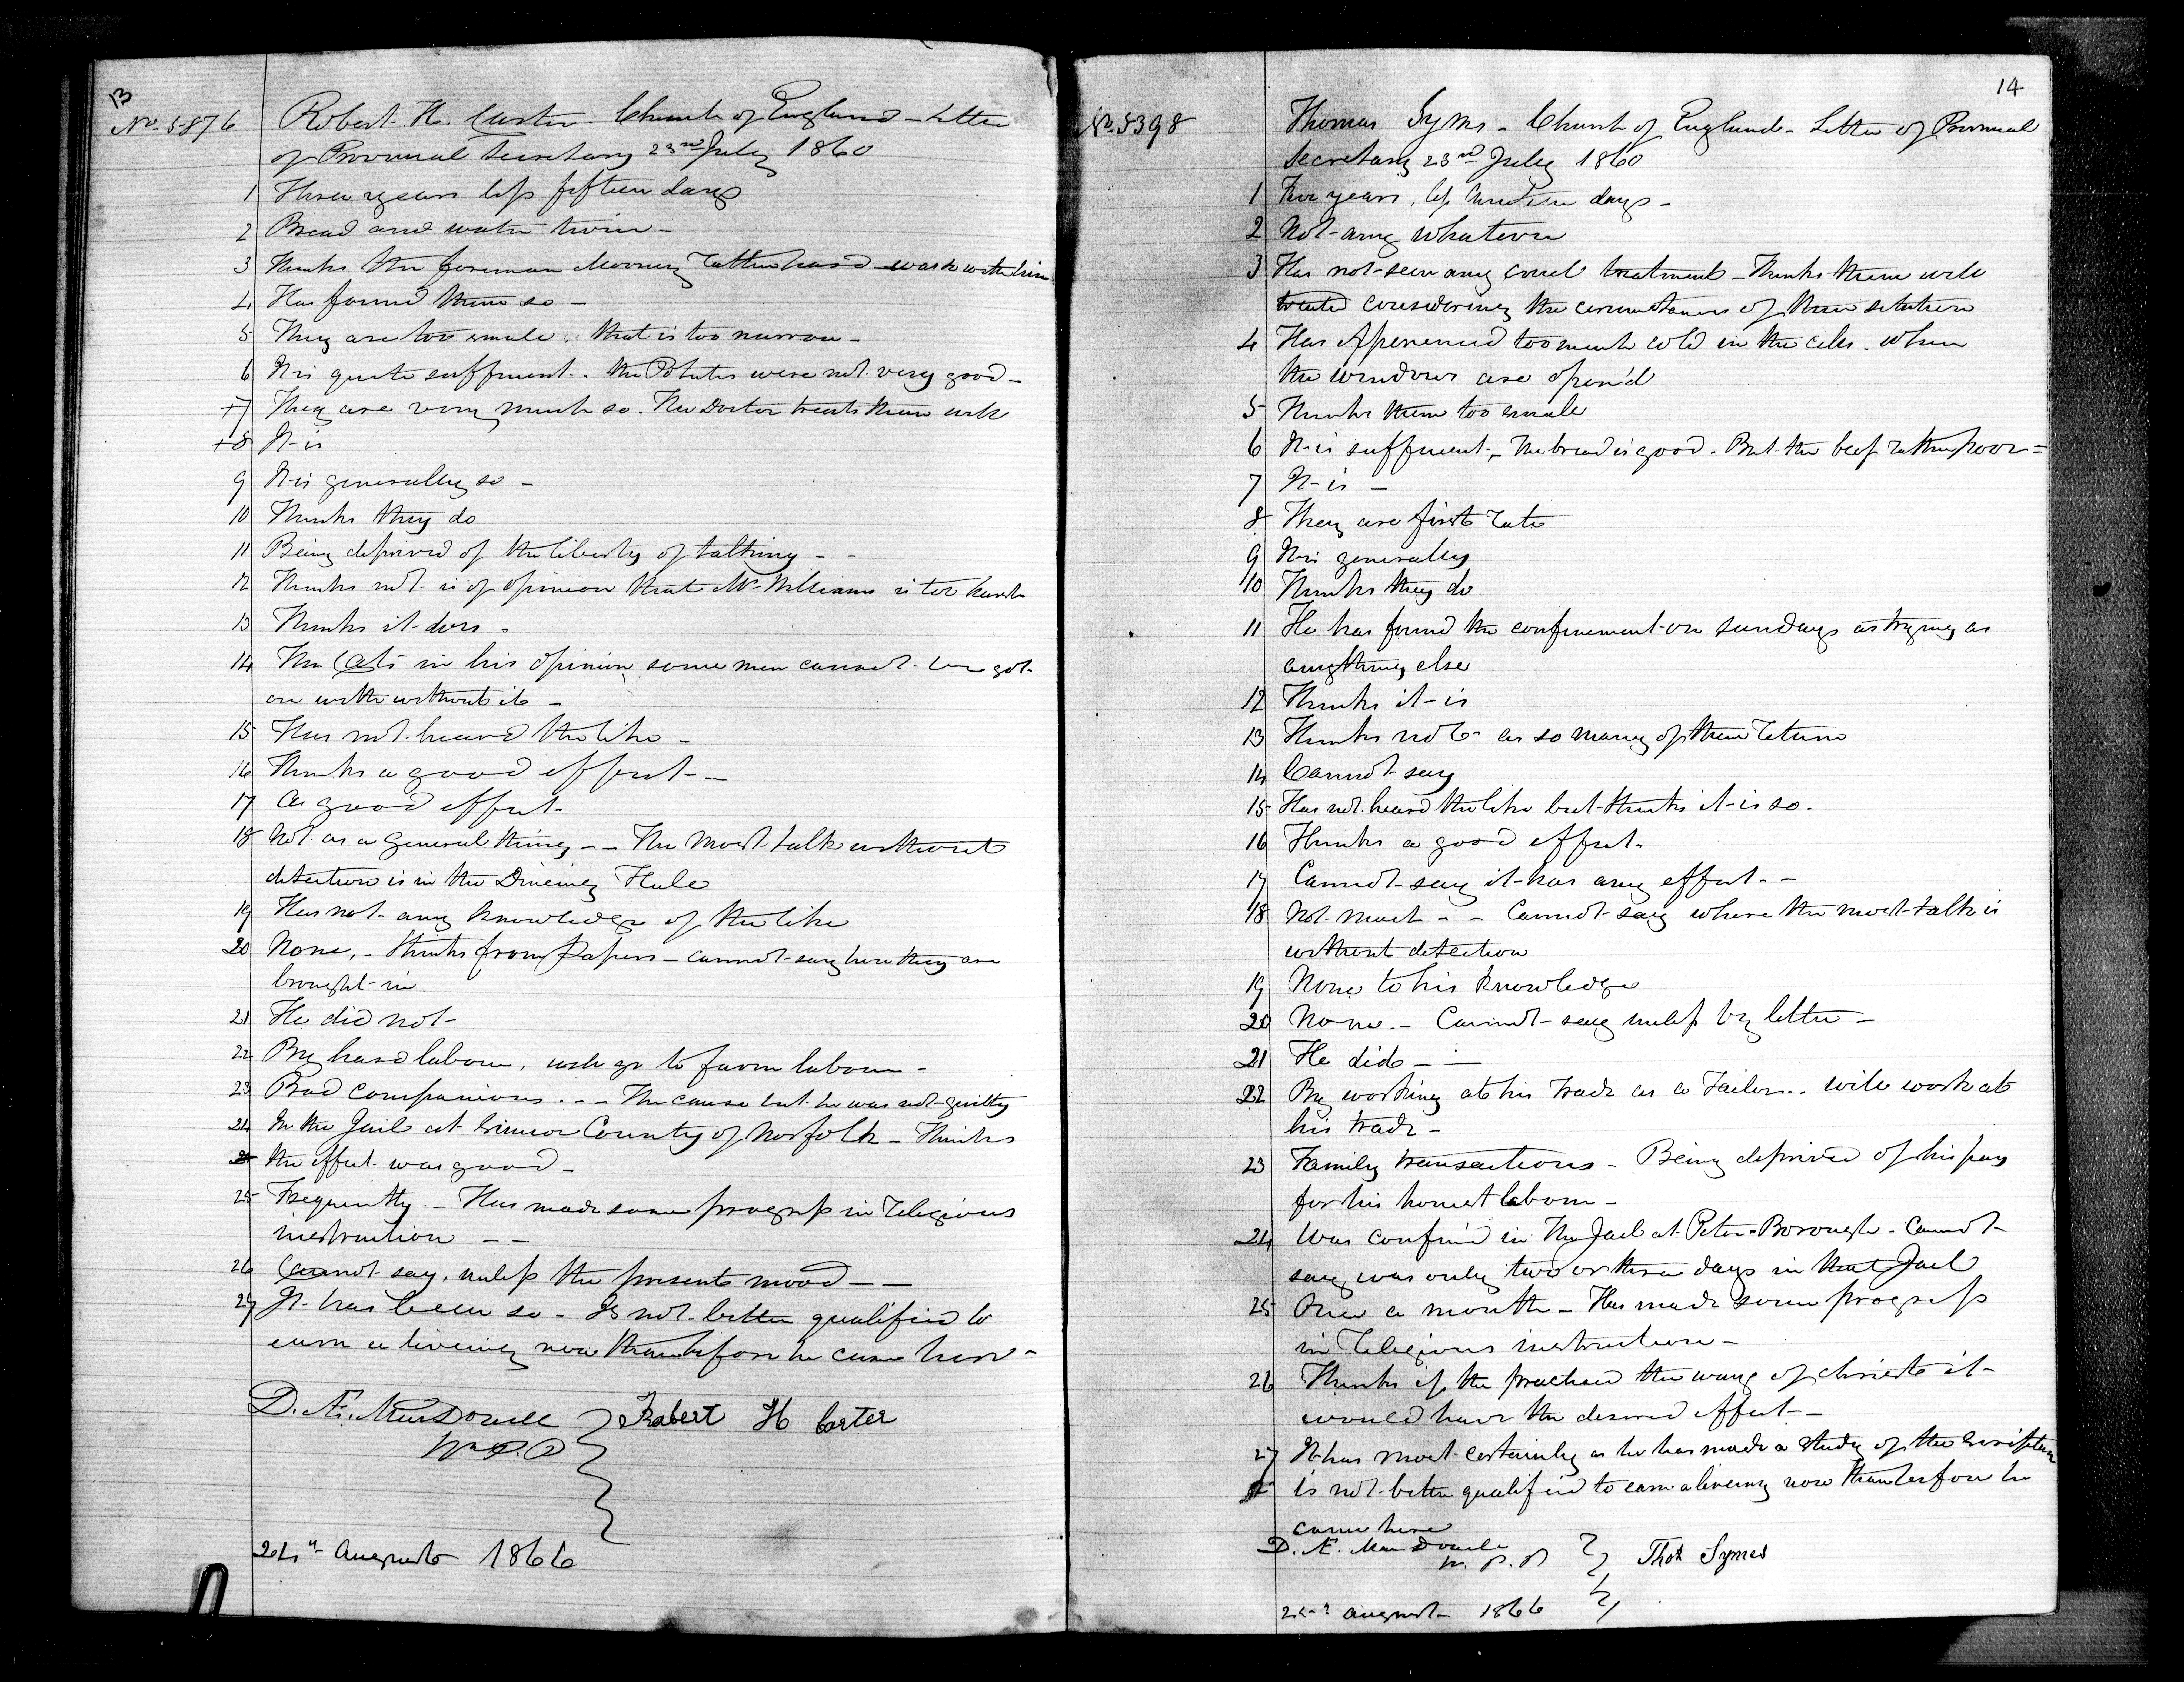 13
No. 5876
Robert H. Carter - Church of England - Letter
of Provincial Secretary 23rd July 1860
1 Three years less fifteen days
2 Bread and water twice -
3 Thinks the foreman Mooney rather hard with him
4 Has found them so -
5 They are too small, that is too narrow -
6 It is quite sufficient. - the Potatoes were not very good -
+7 They are very much so. The Doctor treats them well
+8 It is
9 It is generally so -
10 Thinks they do
11 Being deprived of the liberty of talking - -
12 Thinks not - is of opinion that Mr Williams is too harsh
13 Thinks it does.
14 The Cats in his opinion, some men cannot be got
on with without it -
15 Has not heard the like -
16 Thinks a good effect - -
17 A good effect -
18 Not as a general thing - - The most talk without
detection is in the Dineing Hall
19 Has not any knowledge of the like
20 None, - thinks from Papers - cannot say how they are
brought in
21 He did not -
22 By hard labour, will go to farm labour -
23 Bad companions. - - The cause but he was not guilty
24 In the Jail at Simcoe County of Norfolk - Thinks
the effect was good -
25 Frequently - Has made some progress in religious
instruction - -
26 Cannot say, unless the present mood - -
27 It has been so - Is not better qualified to
earn a liveing now than before he came here -
D. Æ. MacDonell
W. P. P
Robert H Carter
24th August 1866
14
No. 5398
Thomas Syms - Church of England - Letter of Provincial
Secretary 23rd July 1860
1 Five years, less days -
2 Not any whatever
3 Has not seen any cruel treatment - Thinks them well
treated considering the circumstances of their situation
4 Has Experienced too much cold in the cells. when
the windows are open'd
5 Thinks them too small
6 It is sufficient. - The bread is good. But the beef rather poor =
7 It is -
8 They are first rate
9 It is generally
10 Thinks they do
11 He has found the confinement on sundays as trying as
anything else
12 Thinks it is
13 Thinks not as so many of them return
14 Cannot say
15 Has not heard the like but thinks it is so.
16 Thinks a good effect.
17 Cannot say it has any effect. -
18 Not much - - Cannot say where the most talk is
without detection
19 None to his knowledge
20 None. - Cannot say unless by letter -
21 He did - -
22 By working at his trade as a Tailor.. will work at
his trade -
23 Family transactions - Being deprived of his pay
for his honest labour -
24 Was confin'd in The Jail at Peter-Borough - Cannot
say, was only two or three days in that Jail
25 Once a month - Has made some progress
in religious instruction -
26 Thinks if he practised the ways of christ it
would have the desired effect -
27 It has most certainly as he has made a study of the Scripture
is not better qualified to earn a liveing now than before he
came here
D. Æ. MacDonell
W. P. P
Thos Symes
24th August 1866